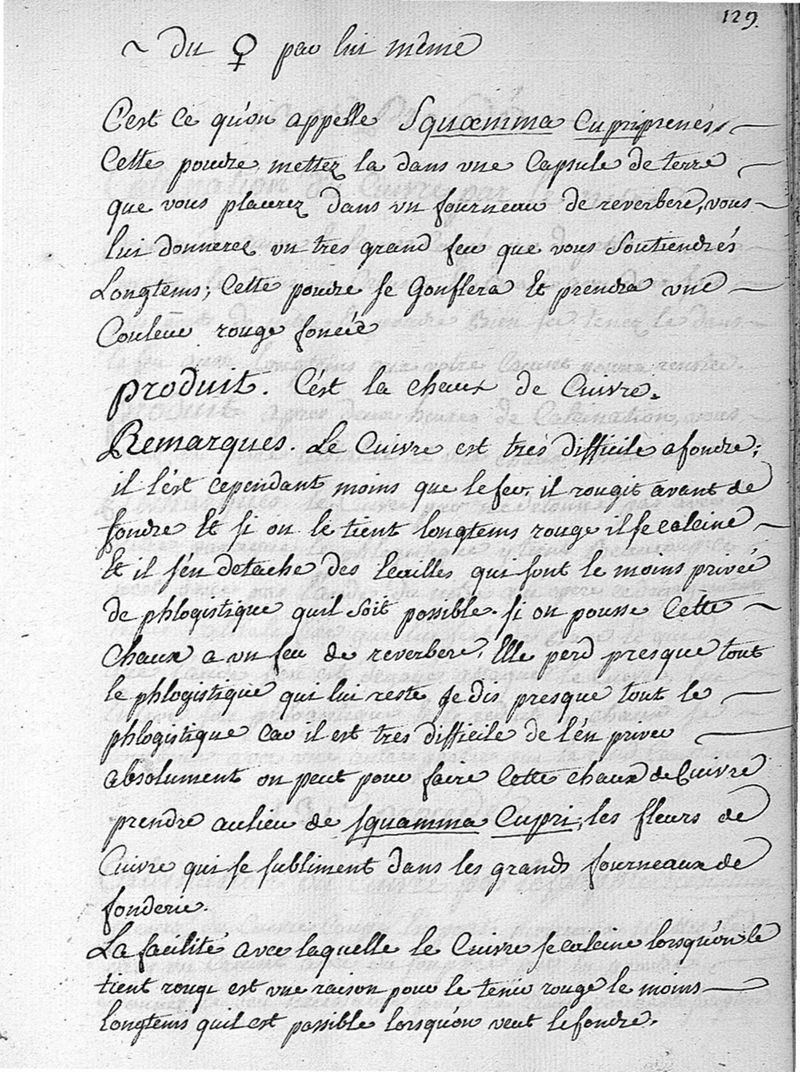 129.
~ du ♀ par lui même
C'est ce qu'on appelle Squamma Cupri prenés
Cette poudre mettez la dans une Capsule de terre
que vous placerez dans un fourneau de reverbere, vous
lui donnerez un tres grand feu que vous Soutiendrés
Longtems; Cette poudre se Gonflera Et prendra une
Couleur rouge foncée
Produit. C'est la chaux de Cuivre.
Remarques. Le Cuivre est tres difficile a fondre;
il l'est cependant moins que le fer, il rougit avant de
fondre Et si on le tient longtems rouge il se calcine
Et il s'en detache des Ecailles qui sont le moins privée
de phlogistique quil soit possible. si on pousse Cette
Chaux a un feu de reverbere, Elle perd presque tout
le phlogistique qui lui reste je dis presque tout le
phlogistique car il est tres difficile de l'en priver
absolument on peut pour faire Cette chaux de Cuivre
prendre aulieu de squamma Cupri, les fleurs de
Cuivre qui se subliment dans les grands fourneaux de
fonderie.
La facilité avec laquelle le Cuivre se calcine lorsqu'on le
tient rouge est une raison pour le tenir rouge le moins
longtems quil est possible lorsqu'on veut le fondre.